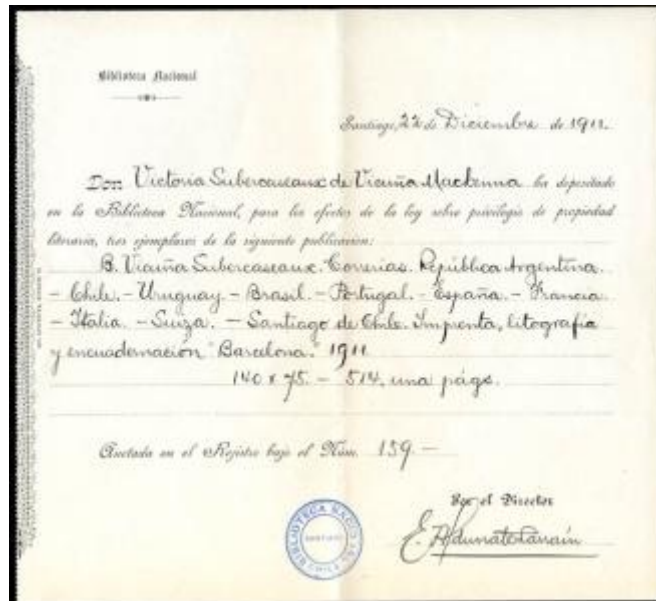 Biblioteca Nacional
Santiago, 22 de Diciembre de 1911.
Don Victoria Subercaseaux de Vicuña Mackenna ha depositado
en la Biblioteca Nacional, para los efectos de la ley sobre privilegio de propiedad
literaria, tres ejemplares de la siguiente publicación:
B. Vicuña Subercaseaux. Correrías. República Argentina.
- Chile. - Uruguay - Brasil. - Portugal. - España. - Francia.
- Italia. - Suiza. - Santiago de Chile. Imprenta, litografía
y encuadernación "Barcelona." 1911
140 x 75. - 514, una págs.
Anotada en el Rejistro bajo el Núm. 159 -
Por el Director
E. Aldunate Larraín
BIBLIOTECA NACIONAL
SANTIAGO
CHILE